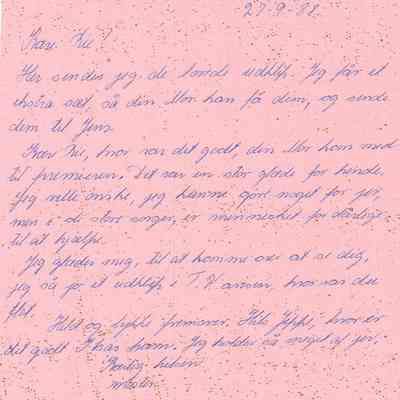 27-9-88.
Kære Rie!
Her sendes jeg de lovede udklip. Jeg får et
ekstra sæt, så din Mor kan få dem, og sende
dem til Jens.
Kære Rie, hvor var det godt, din Mor kom med
til premieren. Det var en stor glæde for hende.
Jeg ville ønske, jeg kunne gøre noget for jer,
men i de store sorger, er mennesket for dårlige
til at hjælpe.
Jeg glæder mig, til at komme over at se dig,
jeg så jo et udklip i hvor var du
flot.
Held og lykke fremover. Hils Jeppe, hvor er
det godt I har ham. Jeg holder så meget af jer.
Kærlig hilsen